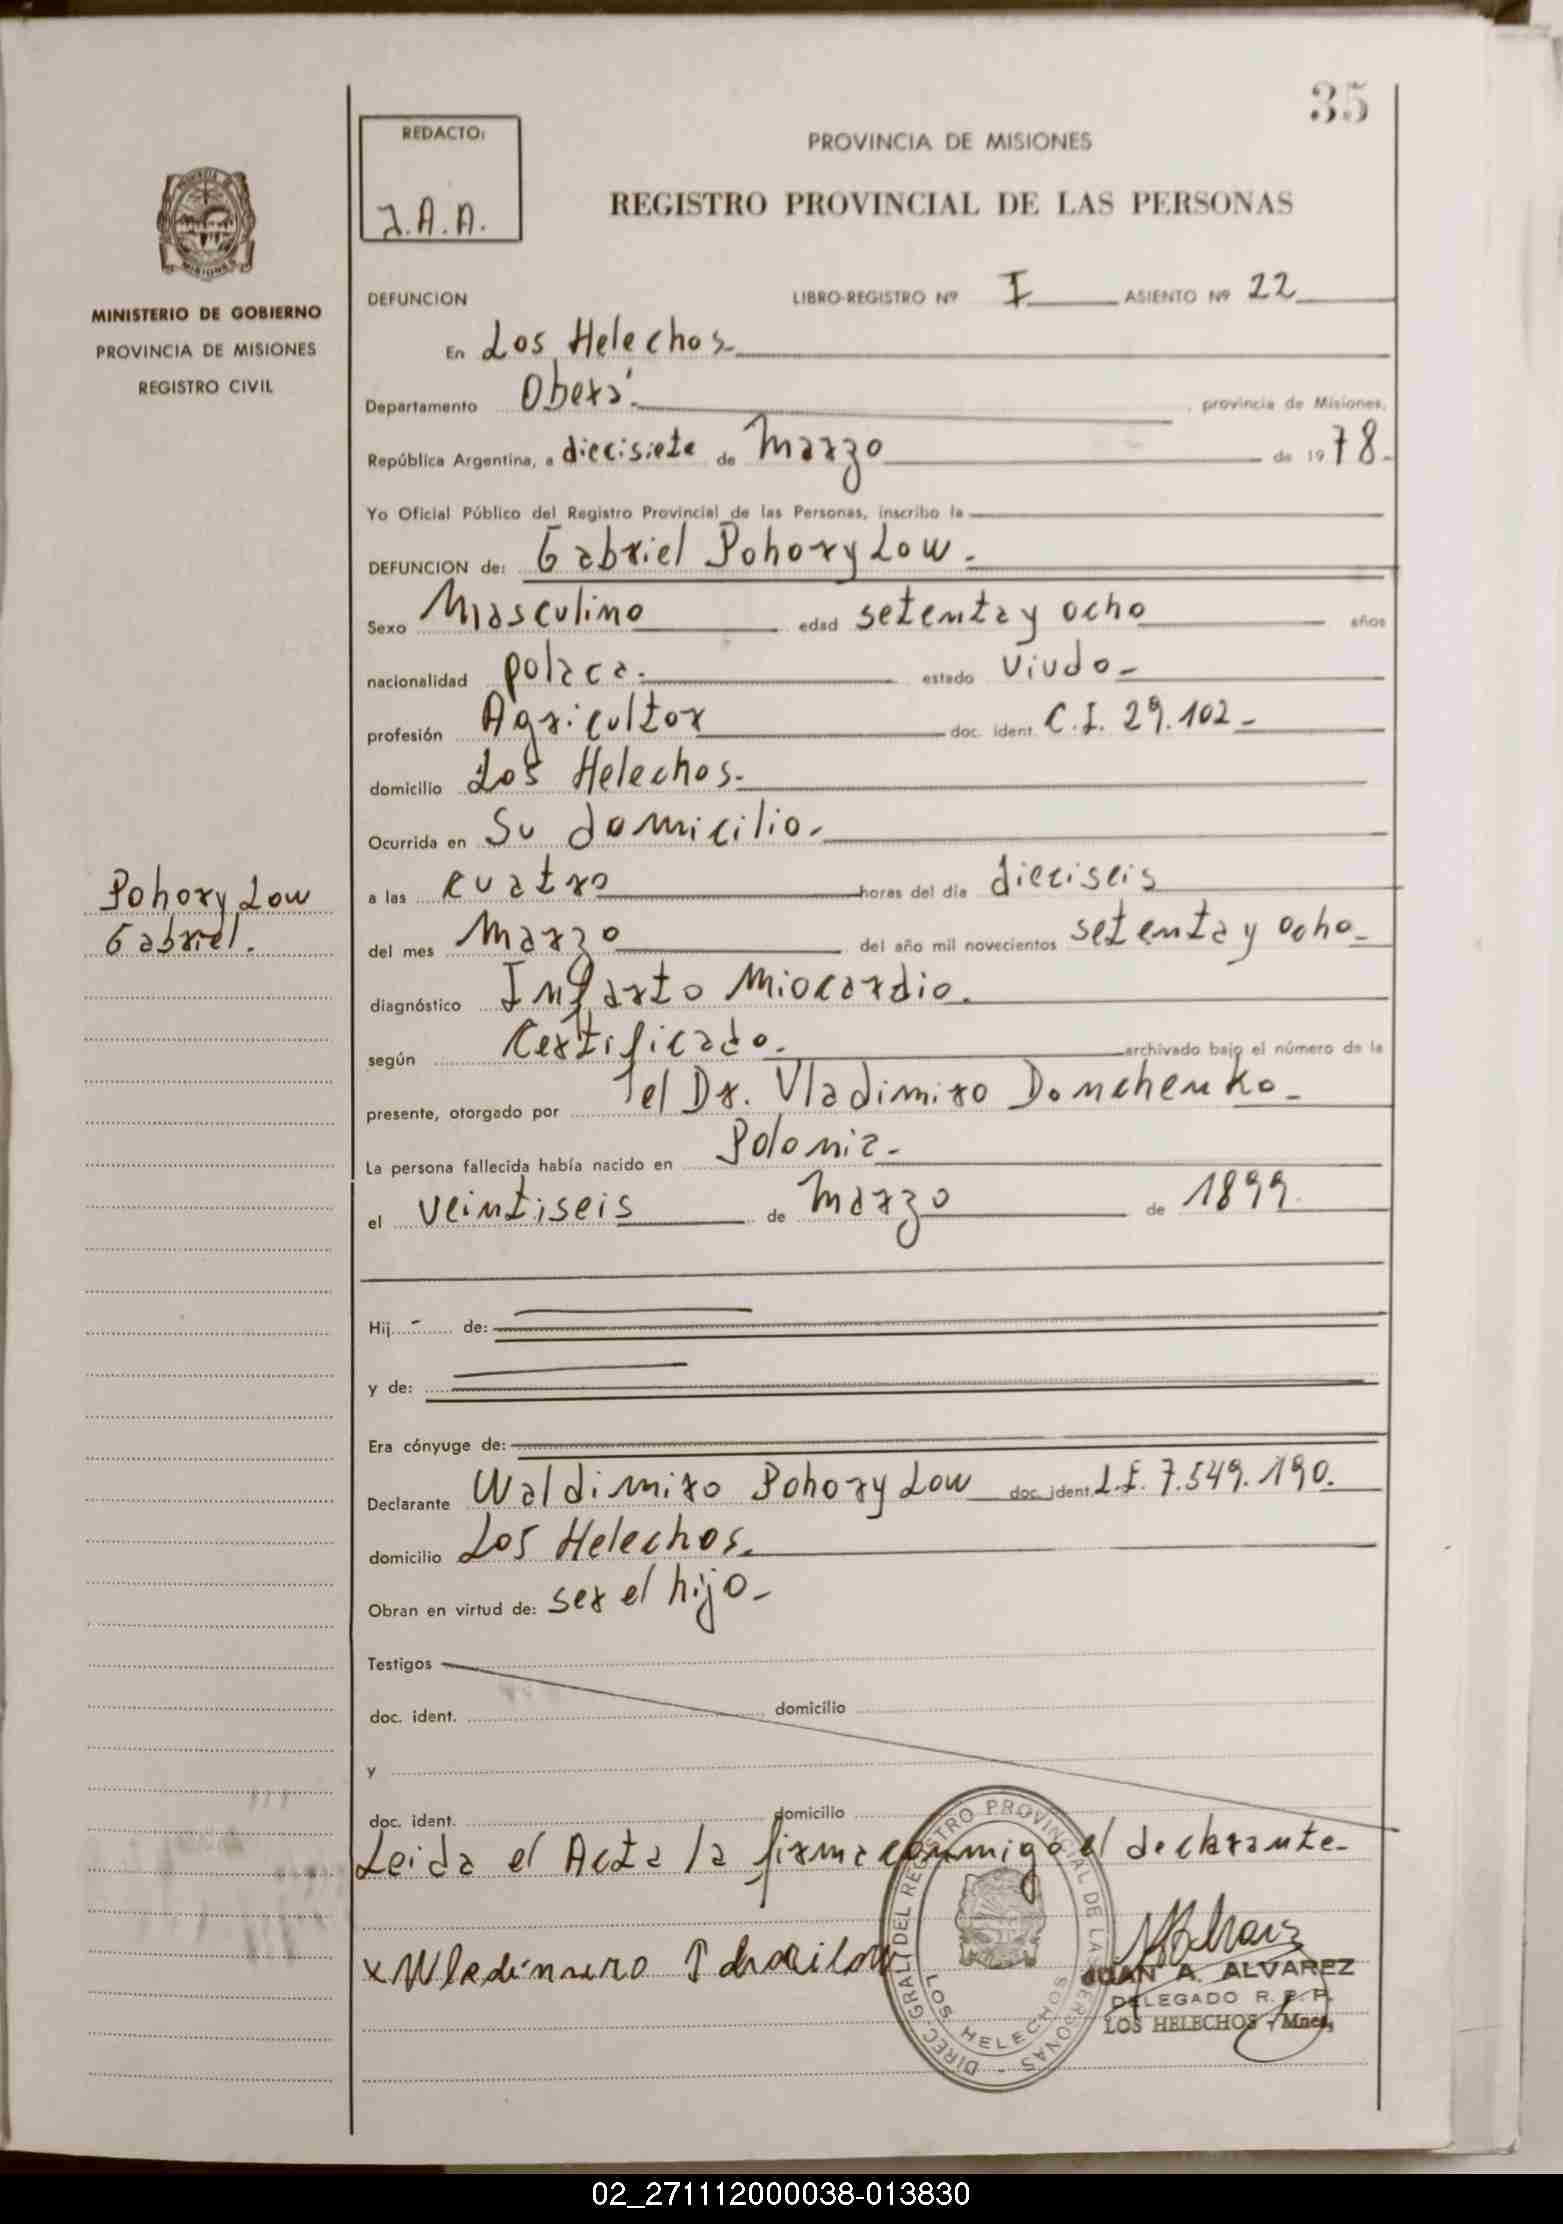 35
REDACTO:
J.A.A.
PROVINCIA DE MISIONES
REGISTRO PROVINCIAL DE LAS PERSONAS
PROVINCIA DE MISIONES
MINISTERIO DE GOBIERNO
PROVINCIA DE MISIONES
REGISTRO CIVIL
DEFUNCION LIBRO-REGISTRO Nº I ASIENTO Nº 22
En Los Helechos
Departamento Oberá. , provincia de Misiones,
República Argentina, a diecisiete de Marzo de 1978.
Yo Oficial Público del Registro Provincial de las Personas, inscribo la
DEFUNCION de: Gabriel PohoryLow.
Sexo Masculino edad setenta y ocho años
nacionalidad polaca. estado Viudo
profesión Agricultor doc. ident. C.I. 29.102
domicilio Los Helechos.
Ocurrida en Su domicilio.
a las cuatro horas del día dieciseis
del mes Marzo del año mil novecientos setenta y ocho
diagnóstico Infarto Miocardio.
según Certificado. archivado bajo el número de la
presente, otorgado por el Dr. Vladimiro Domchenko
La persona fallecida había nacido en Polonia
el veintiseis de Marzo de 1899
Hij - de:
y de:
Era cónyuge de:
Declarante Waldimiro PohoryLow doc. ident. L.E. 7.549.190.
domicilio Los Helechos.
Obran en virtud de: ser el hijo
Testigos
doc. ident. domicilio
y
doc. ident. domicilio
Leida el Acta la firma conmigo el declarante
PohoryLow
Gabriel.
DIREC. GRAL. DEL REGISTRO PROVINCIAL DE LAS PERSONAS
LOS HELECHOS
JUAN A. ALVAREZ
DELEGADO R. P. P.
LOS HELECHOS - Mnes.
02_271112000038-013830